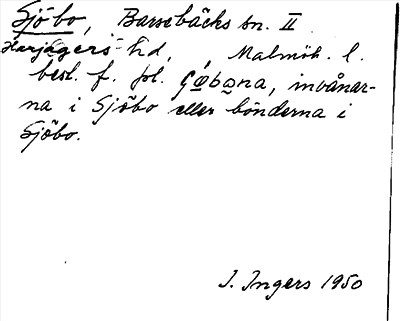 Sjöbo, Barsebäcks sn. II
Harjagers hd, Malmöh. l.
best. f. pl. 
invånar-
na i Sjöbo eller bönderna i
Sjöbo.
I. Ingers 1950